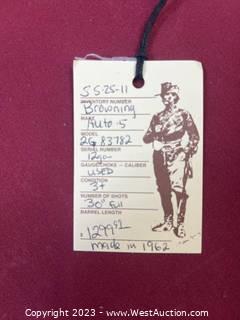 SS-25-11
INVENTORY NUMBER
Browning
MAKE
Auto-5
MODEL
2G 83782
SERIAL NUMBER
12ga
GAUGE/CHOKE - CALIBER
USED
CONDITION
3+
NUMBER OF SHOTS
30" Full
BARREL LENGTH
$ 1299
made in 1962
Copyright © 2023 - www.WestAuction.com